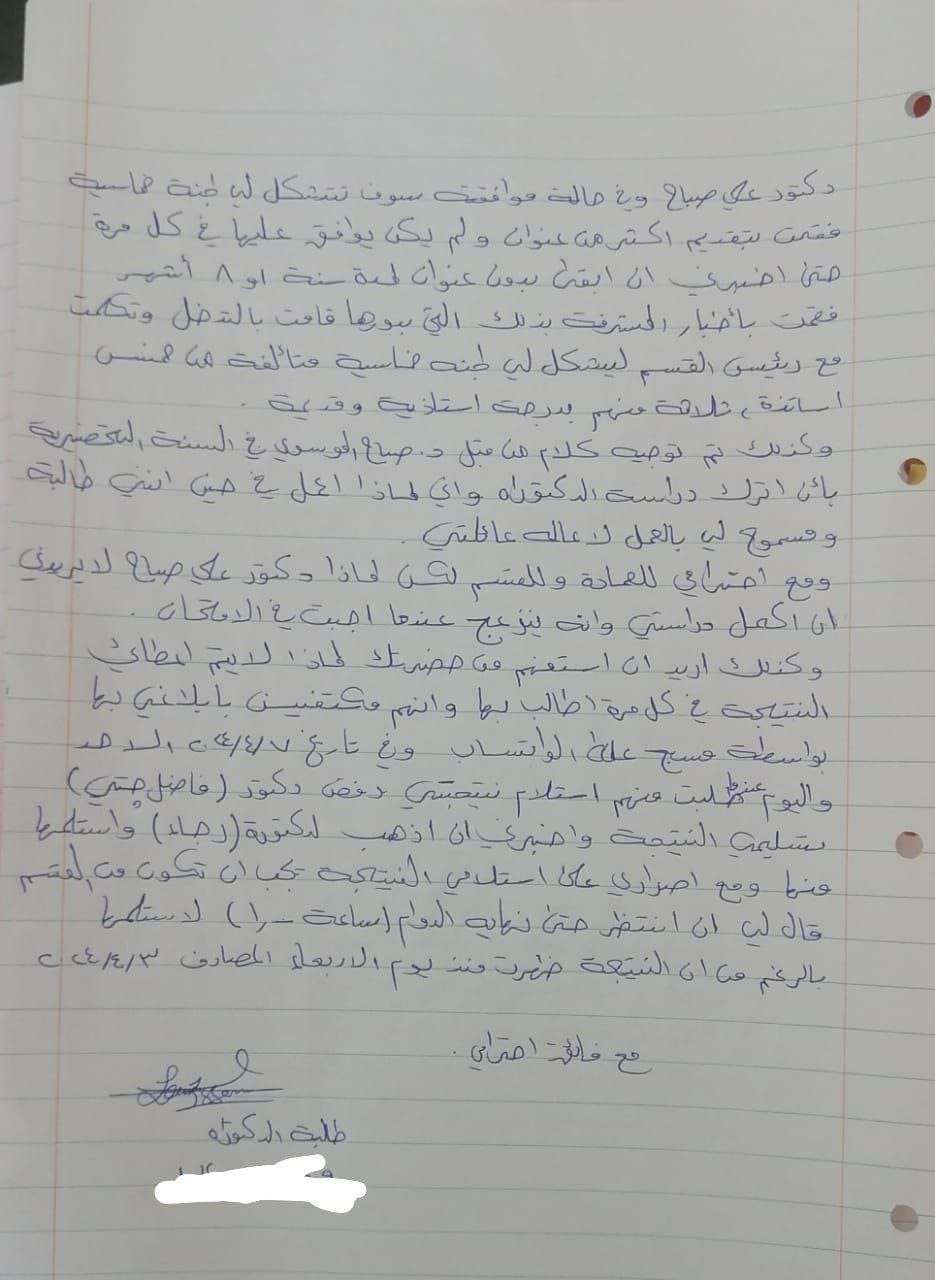 دكتور علي صباح وفي حالة موافقته سوف تتشكل لي لجنة خماسية
فقمت بتقديم اكثر من عنوان ولم يكن يوافق عليها في كل مرة
حتى اخبرني ان ابقى بدون عنوان لمدة سنة او ٨ أشهر
فقمت بأخبار المشرفة بذلك التي بدورها قامت بالتدخل وتكلمت
مع رئيس القسم ليشكل لي لجنه خماسية متألفة من خمس
اساتذة، ثلاثة منهم بدرجة استاذية وقدعة .
وكذلك تم توجيه كلام من قبل د. صباح الموسوي في السنة التحضيرية
بأن اترك دراسة الدكتوراه واني لماذا اعمل في حين انني طالبة
ومسموح لي بالعمل لاعاله عائلتي .
ومع احترامي للعمادة وللقسم لكن لماذا دكتور علي صباح لا يريدني
ان اكمل دراستي وانه ينزعج عندما اجبت في الامتحان .
وكذلك اريد ان استفهم من حضرتك لماذا لا يتم اعطائي
النتيجة في كل مرة اطالب بها وانهم مكتفين بأبلاغي بها
بواسطة مسج على الواتساب وفي تاريخ ٢٠٢٤/٤/٧ الاحد
واليوم عندما طلبت منهم استلام نتيجتي رفض دكتور (فاضل چتي)
تسليمي النتيجة واخبرني ان اذهب لدكتورة (رجاء) واستلمها
منها ومع اصراري على استلامي النتيجة يجب ان تكون من القسم
قال لي ان انتظر حتى نهايه الدوام (ساعة ١٠٠) لاستلمها
بالرغم من ان النتيجة ظهرت منذ يوم الاربعاء المصادف ٢٠٢٤/٤/٣
مع فائق احترامي .
طلبة الدكتوراه